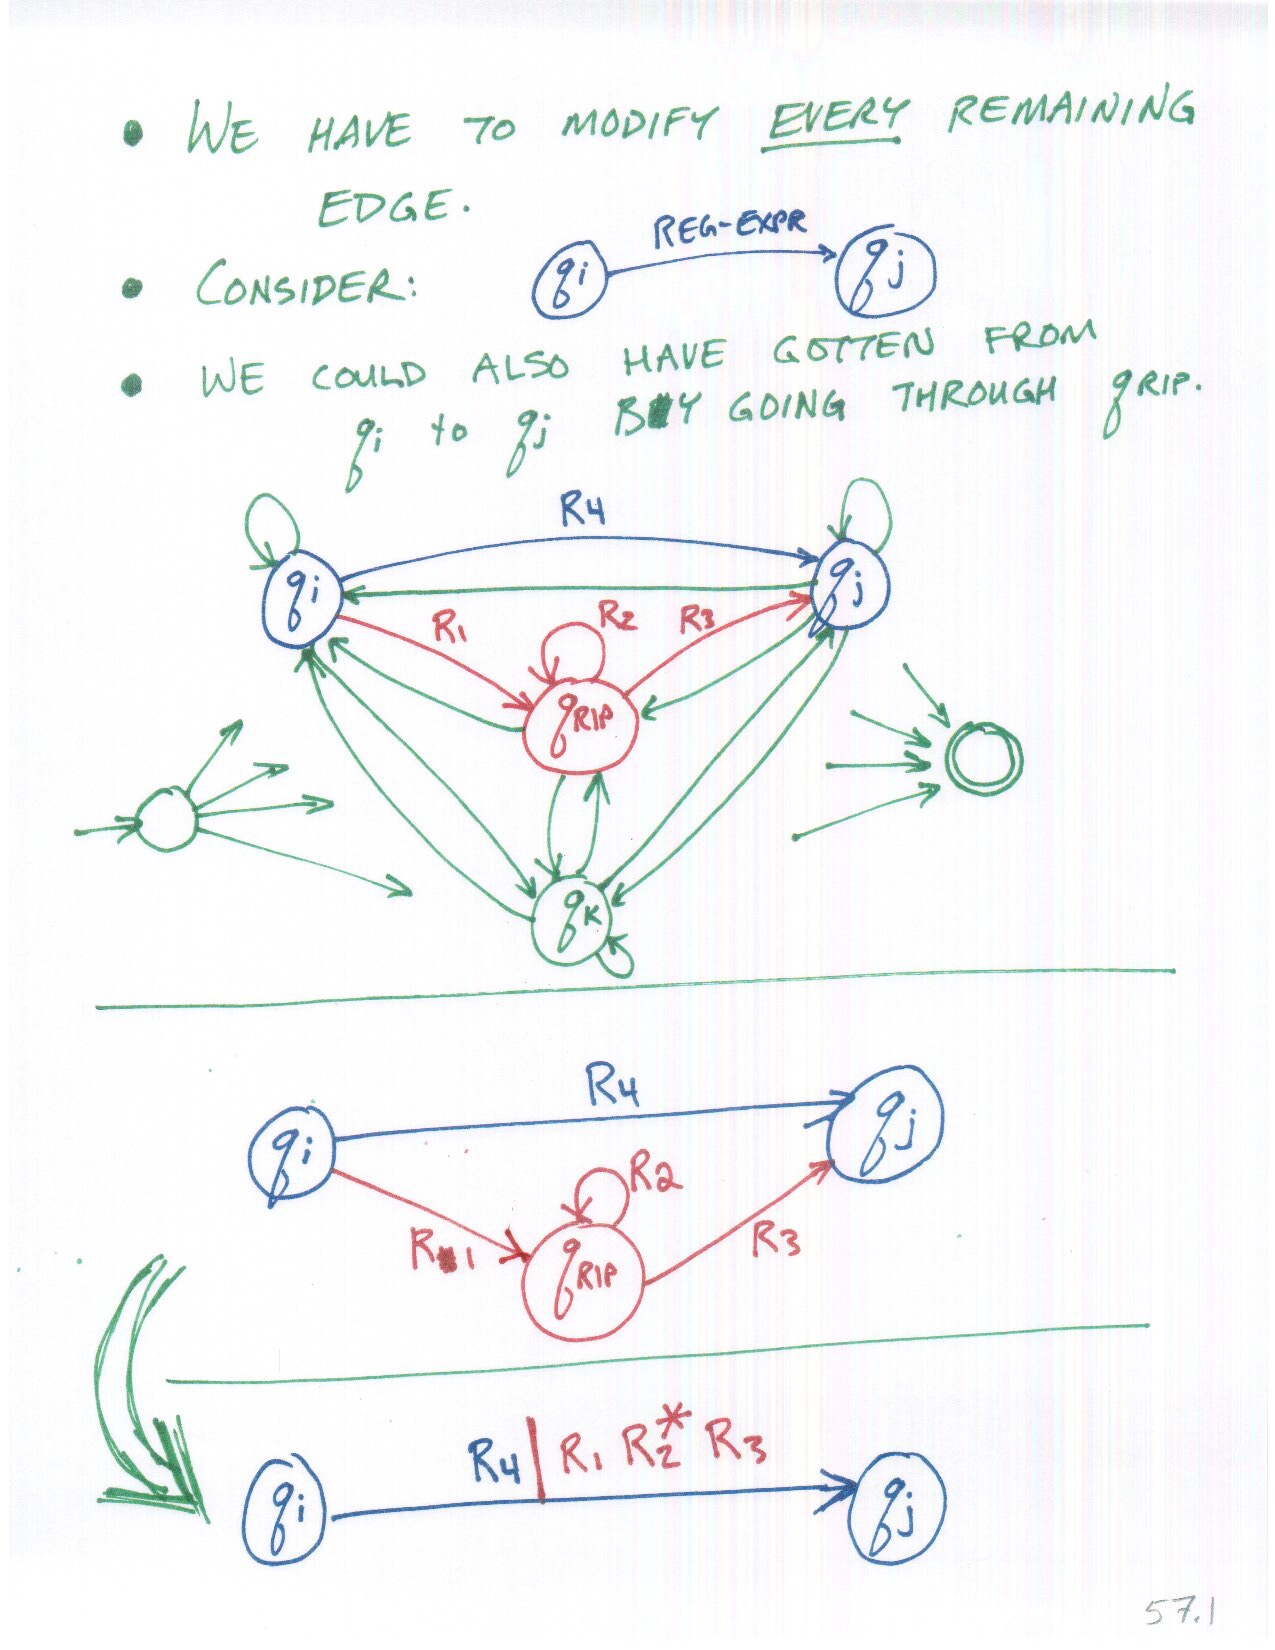 • WE HAVE TO MODIFY EVERY REMAINING
EDGE.
REG-EXPR
• CONSIDER: qi qj
• WE COULD ALSO HAVE GOTTEN FROM
qi to qj BY GOING THROUGH qRIP.
R4
qi qj
R1 R2 R3
qRIP
qK
R4
qi qj
R2
R1 R3
qRIP
R4 | R1 R2* R3
qi qj
57.1